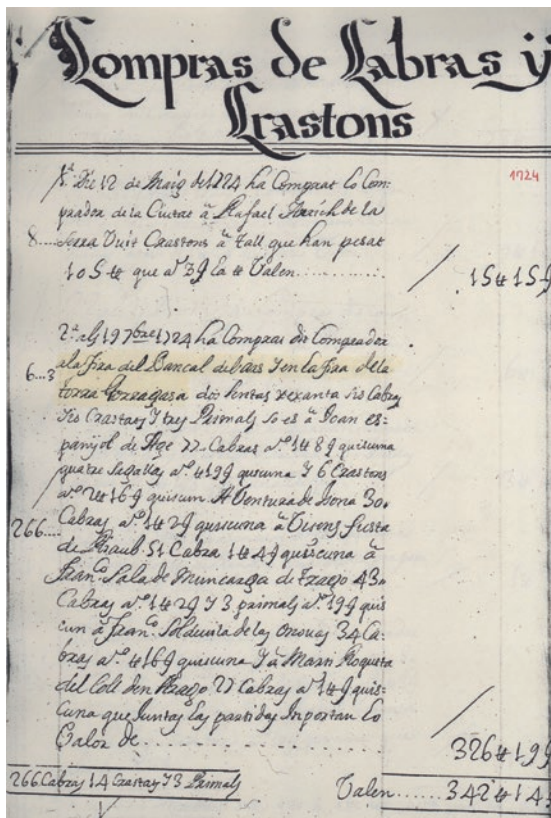 Compras de Cabras y
Crastons
1724
1.ª Die 12 de Maig de 1724 ha Comprat lo Com:
prador de la Ciutat â Rafael de la
8.... Serra Vuit Crastons â tall que han pesat
105 ₶ que aˢ 3 ꝭ la ₶ Valen............ 15 ₶ 15 ꝭ
2.ª als 19 7bre 1724 ha Compras dit Comprador
6...3 a la fira del Bancal de bars Y en la fira de la
torra dos Sentas xexanta sis Cabras
sis Crastats Y tres Primals so es â Joan es:
panyol de Age 77 Cabras aˢ 1 ₶ 8 ꝭ quiscuna
quatre aˢ ₶ 19 ꝭ quiscuna Y 6 Crastons
aˢ 2 ₶ 16 ꝭ quiscun. A Ventura de Isona 30.
266.... Cabras aˢ 1 ₶ 2 ꝭ quiscuna â Visens
de 51 Cabra 1 ₶ 4 ꝭ quiscuna â
Franᶜᵒ Sala de de 43.
Cabras aˢ 1 ₶ 2 ꝭ Y 3 primals aˢ 19 ꝭ quis
cun â Franᶜᵒ de las 34 Ca:
bras aˢ ₶ 16 ꝭ quiscuna Y â Roqueta
del Coll den 27 Cabras aˢ 1 ₶ ꝭ quis:
cuna que Juntas las partidas Inportan lo
Valor de............ 326 ₶ 19 ꝭ
266 Cabras 14 Crastats Y 3 Primals Valen...... 342 ₶ 14